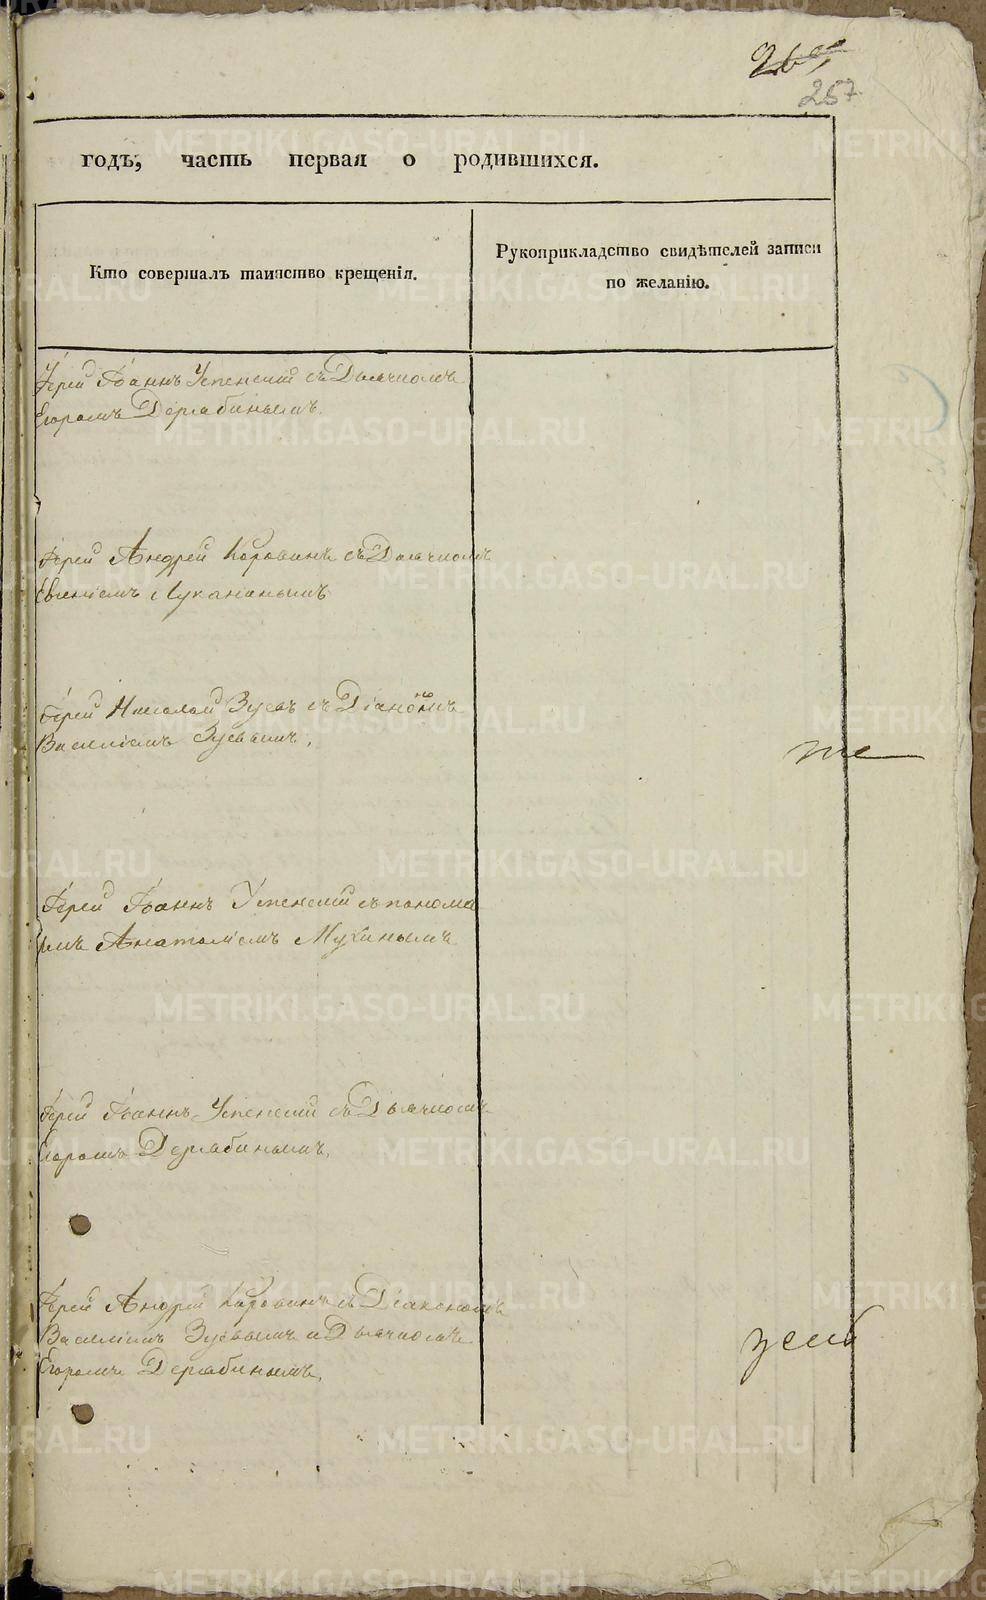 257
годъ, часть первая о родившихся.
Кто совершалъ таинство крещенія.
Рукоприкладство свидѣтелей записи
по желанію.
Іерей Іоаннъ Успенскій съ Дьячкомъ
Егоромъ Дерябинымъ.
Іерей Андрей Коровинъ съ Дьячкомъ
Евгеніемъ Луканинымъ
Іерей Николай Зуевъ съ Діакономъ
Василіемъ Зуевымъ,
Іерей Іоаннъ Успенскій съ понома
ремъ Анатоліемъ Мухинымъ
Іерей Іоаннъ Успенскій съ Дьячкомъ
Егоромъ Дерябинымъ,
Іерей Андрей Коровинъ съ Діакономъ
Василіемъ Зуевымъ и Дьячкомъ
Егоромъ Дерябинымъ,
METRIKI.GASO-URAL.RU